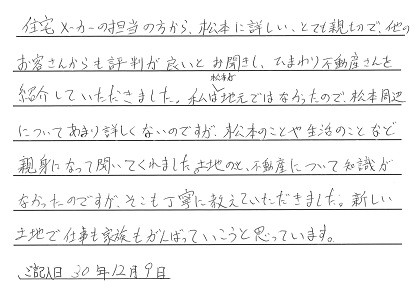 住宅メーカーの担当の方から、松本に詳しい、とても親切で、他の
お客さんからも評判が良いとお聞きし、ひまわり不動産さんを
紹介していただきました。私は松本が地元ではなかったので、松本周辺
についてあまり詳しくないのですが、松本のことや生活のことなど
親身になって聞いてくれました。土地のこと、不動産について知識が
なかったのですが、そこも丁寧に教えていただきました。新しい
土地で仕事も家族もがんばっていこうと思っています。
ご記入日 30年12月9日